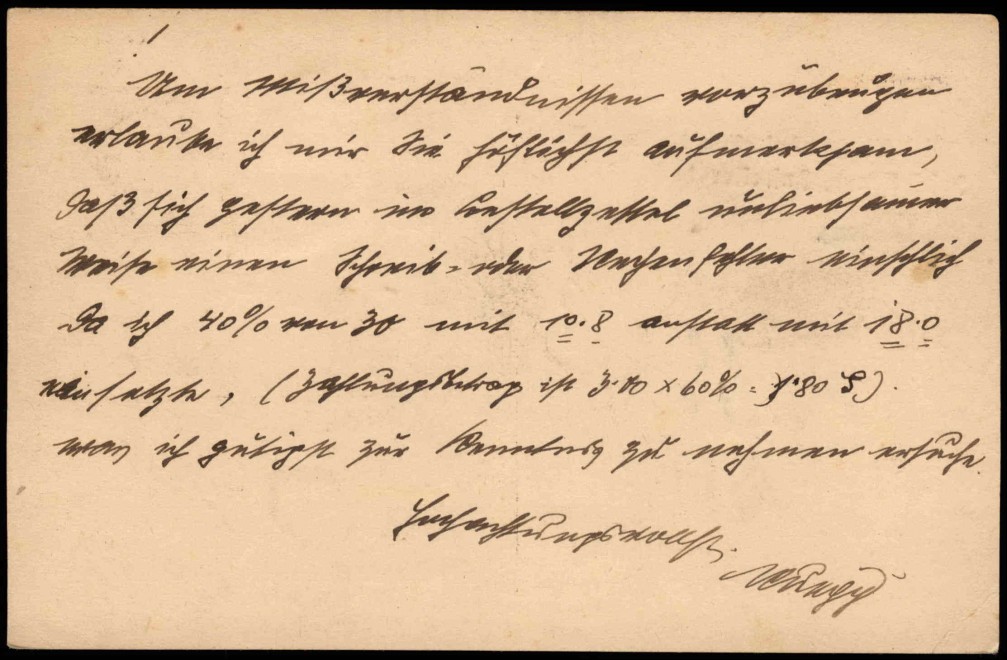 Um Mißverständnissen vorzubeugen
erlaube ich mir Sie höflichst aufmerksam,
daß sich gestern im Bestellzettel unliebsamer
Weise einen Schreib- oder Rechenfehler einschlich
Da ich 40% von 30 mit 10.8 anstatt mit 18.0
einsetzte, (Zahlungsbetrag ist 3.00 x 60% = 1.80 S).
was ich gütigst zur Kenntnis zu nehmen ersuche.
Hochachtungsvollst.